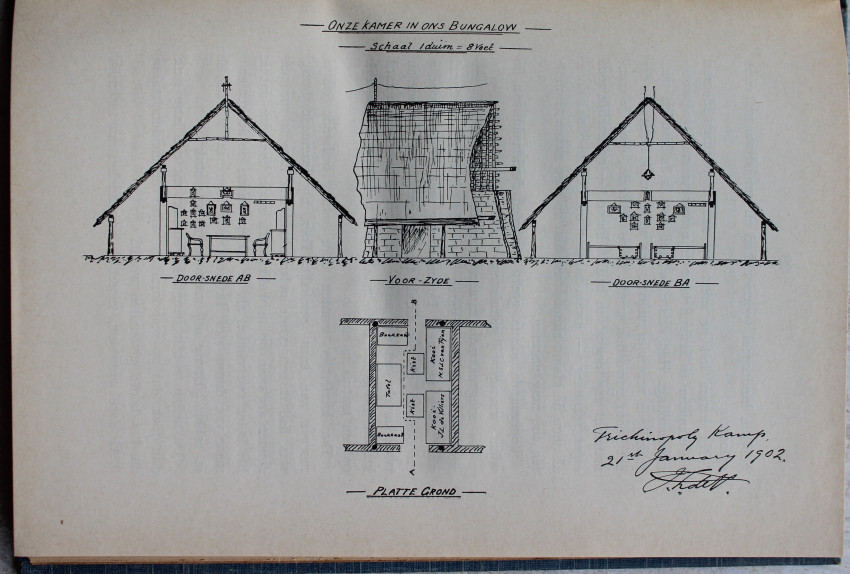 ONZE KAMER IN ONS BUNGALOW
Schaal 1 duim = 8 Voet
DOOR-SNEDE AB
VOOR-ZYDE
DOOR-SNEDE BA
B
Boekkast
Kooi
Kist
Tafel
Kist
Kooi
J.L. de Villiers
Boekkast
A
PLATTE GROND
Trichinopoly Kamp.
21st January 1902.